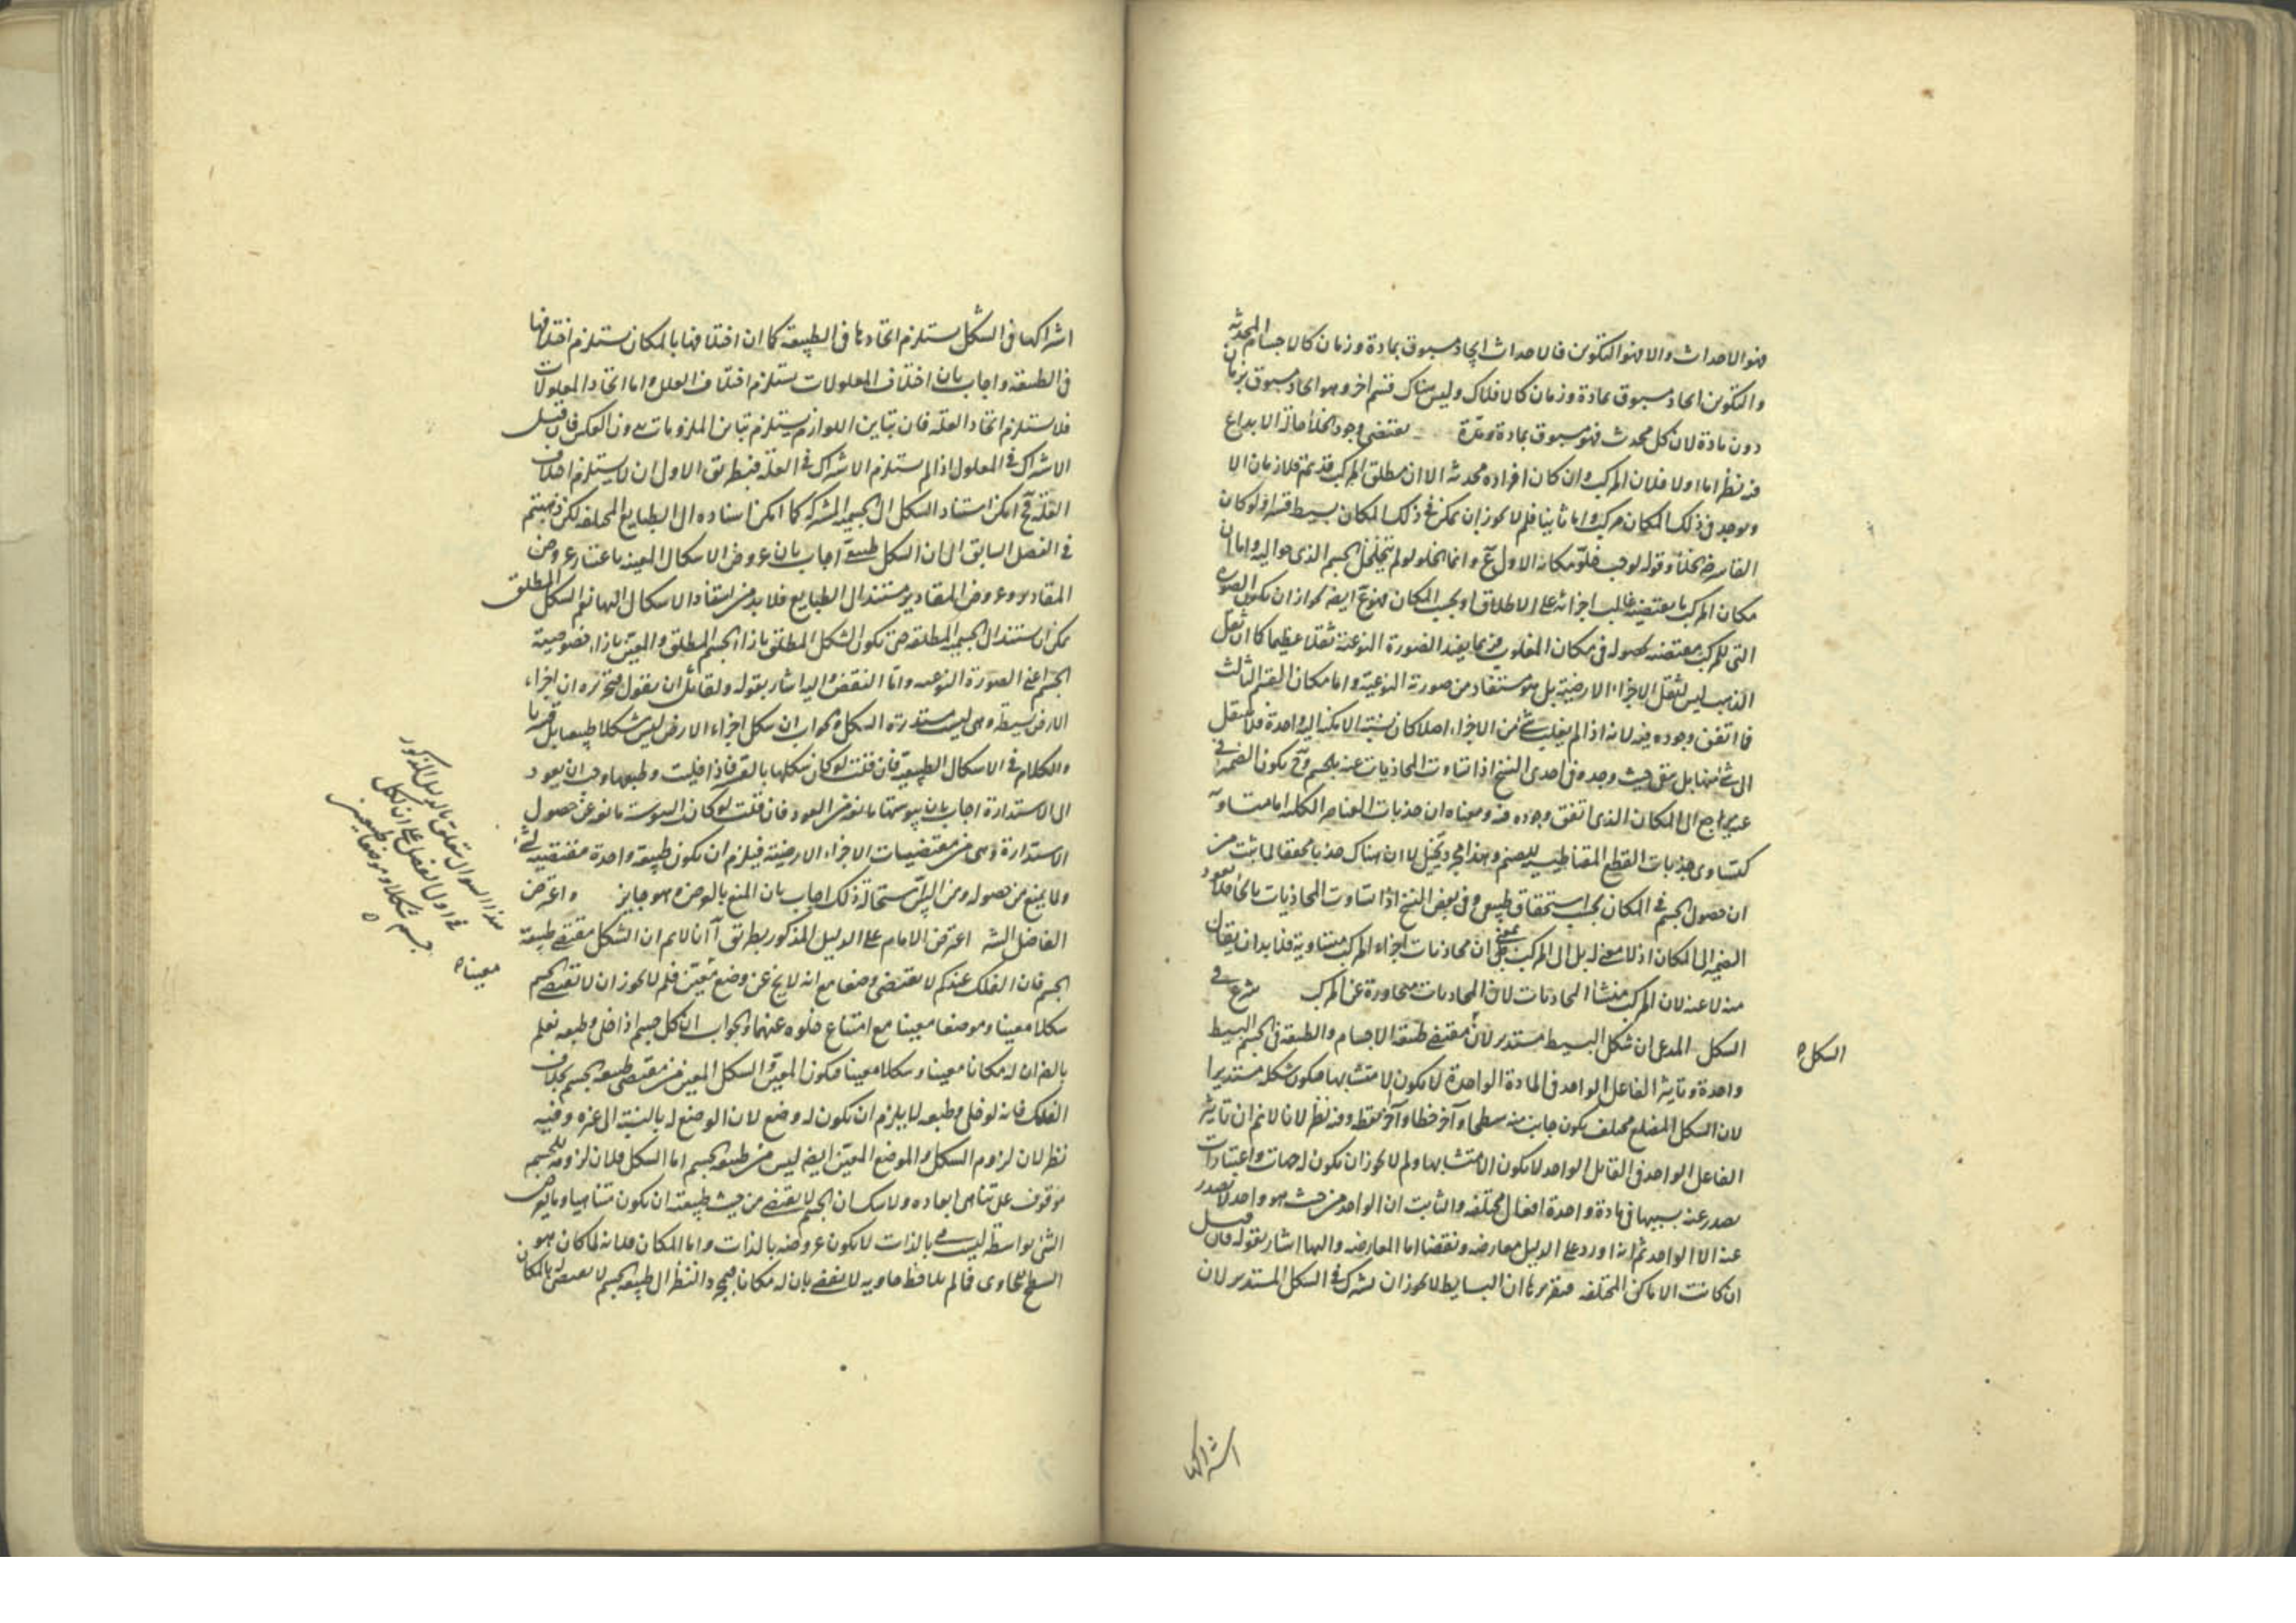 فهو الاحداث والا فهو التكوين فالاحداث ايجاد مسبوق بمادة وزمان كالاجسام المحدثة
والتكوين ايجاد مسبوق بمادة وزمان كالافلاك وليس هناك قسم اخر وهو ايجاد مسبوق بزمان
دون مادة لان كل محدث فهو مسبوق بمادة ومدة يقتضى وجود الخلأ حالة الابداع
فيه نظر اما اولا فلان المركب وان كان افراده محدثة الا ان مطلق المركب قديمة فلا زمان الا
ويوجد فى ذلك المكان مركب واما ثانيا فلم لا يجوز ان يتمكن فى ذلك المكان بسيط قسرا ولو كان
القاسر الخلأ وقوله لوجب خلو مكانه الاول مم وانما الخلو لو لم يتخلخل الجسم الذى حواليه واما ان
مكان المركب ما يقتضيه غالب اجزائه على الاطلاق او بحسب المكان فهو مم ايضا لجواز ان يكون الصورة
التى للمركب مقتضية لحصوله فى مكان المغلوب فربما يفيد الصورة النوعية ثقلا عظيما كما ان ثقل
الذهب ليس لثقل الاجزاء الارضية بل هو مستفاد من صورته النوعية واما مكان القسم الثالث
فما اتفق وجوده فيه لانه اذا لم يغلب شئ من الاجزاء اصلا كان نسبة الامكنة اليه واحدة فلا ينتقل
الى شئ منها بل يبقى حيث وجد وفى احدى النسخ اذا تساوت المحاذيات عنه بالجسم وح يكون الضمير فى
عنه راجع الى المكان الذى اتفق وجوده فيه ومعناه ان جذبات العناصر الكلية اما متساوية
كتساوى جذبات القطع المقناطيسية للصنم وهذا مجرد تخيل لا ان هناك جذبا محققا لما ثبت من
ان حصول الجسم فى المكان بحسب استحقاق طبيعى وفى بعض النسخ اذا تساوت المحاذيات بالخا فلا يعود
الضمير الى المكان اذ لا معنى له بل الى المركب بمعنى ان محاذيات اجزاء المركب متساوية فلا بد ان يقال
منه لا عنه لان المركب منشأ المحاذيات لا ان المحاذيات متجاوزة عن المركب شرع فى
الشكل المدعى ان شكل البسيط مستدير لانه مقتضى طبيعة الاجسام والطبيعة فى الجسم البسيط
واحدة وتاثير الفاعل الواحد فى المادة الواحدة لا يكون الا متشابها فيكون شكله مستديرا
لان الشكل المضلع مختلف يكون جانب منه سطحا وآخر خطا وآخر نقطة وفيه نظر لانا لا نم ان تاثير
الفاعل الواحد فى القابل الواحد لا يكون الا متشابها ولم لا يجوز ان يكون له جهات واعتبارات
يصدر عنه بسببها فى مادة واحدة افعال مختلفة والثابت ان الواحد من حيث هو واحد لا يصدر
عنه الا الواحد ثم انه اورد على الدليل معارضة ونقضا اما المعارضة واليها اشار بقوله فان قيل
ان كانت الاماكن المختلفة فتقريرها ان البسايط لا يجوز ان تشترك فى الشكل المستدير لان
الشكل
اشتراكها
اشتراكها فى الشكل يستلزم اتحادها فى الطبيعة كما ان اختلافها بالمكان يستلزم اختلافها
فى الطبيعة واجاب بان اختلاف المعلولات يستلزم اختلاف العلل واما اتحاد المعلولات
فلا يستلزم اتحاد العلة فان تباين اللوازم يستلزم تباين الملزومات دون العكس فان قيل
الاشتراك فى المعلول اذا لم يستلزم الاشتراك فى العلة فبطريق الاولى ان لا يستلزم اختلاف
العلة فح امكن استناد الشكل الى الجسمية المشتركة كما امكن اسناده الى الطبايع المختلفة لكن ذهبتم
فى الفصل السابق الى ان الشكل طبيعى اجاب بان عروض الاشكال المعينة باعتبار عروض
المقادير وعروض المقادير مستند الى الطبايع فلا بد من استناد الاشكال اليها نعم الشكل المطلق
يمكن ان يستند الى الجسمية المطلقة حتى يكون الشكل المطلق بازاء الجسم المطلق والمعين بازاء خصوصية
الجسم اعنى الصورة النوعية واما النقض واليه اشار بقوله ولقائل ان يقول فتحريره ان اجزاء
الارض بسيطة وهى ليست مستديرة الشكل والجواب ان شكل اجزاء الارض ليس شكلا طبيعيا بل قسريا
والكلام فى الاشكال الطبيعية فان قلت لو كان شكلها بالقسر فاذا خليت وطبعها وجب ان يعود
الى الاستدارة اجاب بان يبوستها مانعة من العود فان قلت لو كان اليبوسة مانعة عن حصول
الاستدارة وهى من مقتضيات الاجزاء الارضية فيلزم ان يكون طبيعة واحدة مقتضية لشئ
ولما يمنع من حصوله ومن البين استحالة ذلك اجاب بان المنع بالعرض وهو جايز واعترض
الفاضل الشه اعترض الامام على الدليل المذكور بطريق آ انا لا نم ان الشكل مقتضى طبيعة
الجسم فان الفلك عندكم لا يقتضى وضعا مع انه لا يخ عن وضع معين فلم لا يجوز ان لا يقتضى الجسم
شكلا معينا وموضعا معينا مع امتناع خلوه عنهما والجواب ان كل جسم اذا خلى وطبعه نعلم
بالضر ان له مكانا معينا وشكلا معينا فيكون المعين والشكل المعين من مقتضى طبيعة الجسم بخلاف
الفلك فانه لو خلى وطبعه لا يلزم ان يكون له وضع لان الوضع له بالنسبة الى غيره وفيه
نظر لان لزوم الشكل والموضع المعين ايضا ليس من طبيعة الجسم اما الشكل فلان لزومه للجسم
موقوف على تناهى ابعاده ولا شك ان الجسم لا يقتضى من حيث طبيعته ان يكون متناهيا وما يعرض
الشئ بواسطة ليست بالذات لا يكون عروضه بالذات واما المكان فلانه لما كان هو
السطح الحاوى فما لم يلاحظ حاويه لا يقضى بان له مكانا فبمجرد النظر الى طبيعة الجسم لا يقتضى المكان
هذا السوال متعلق بالدليل المذكور
فى اول الفصل على ان لكل
جسم شكلا وموضعا طبيعيين
معينا